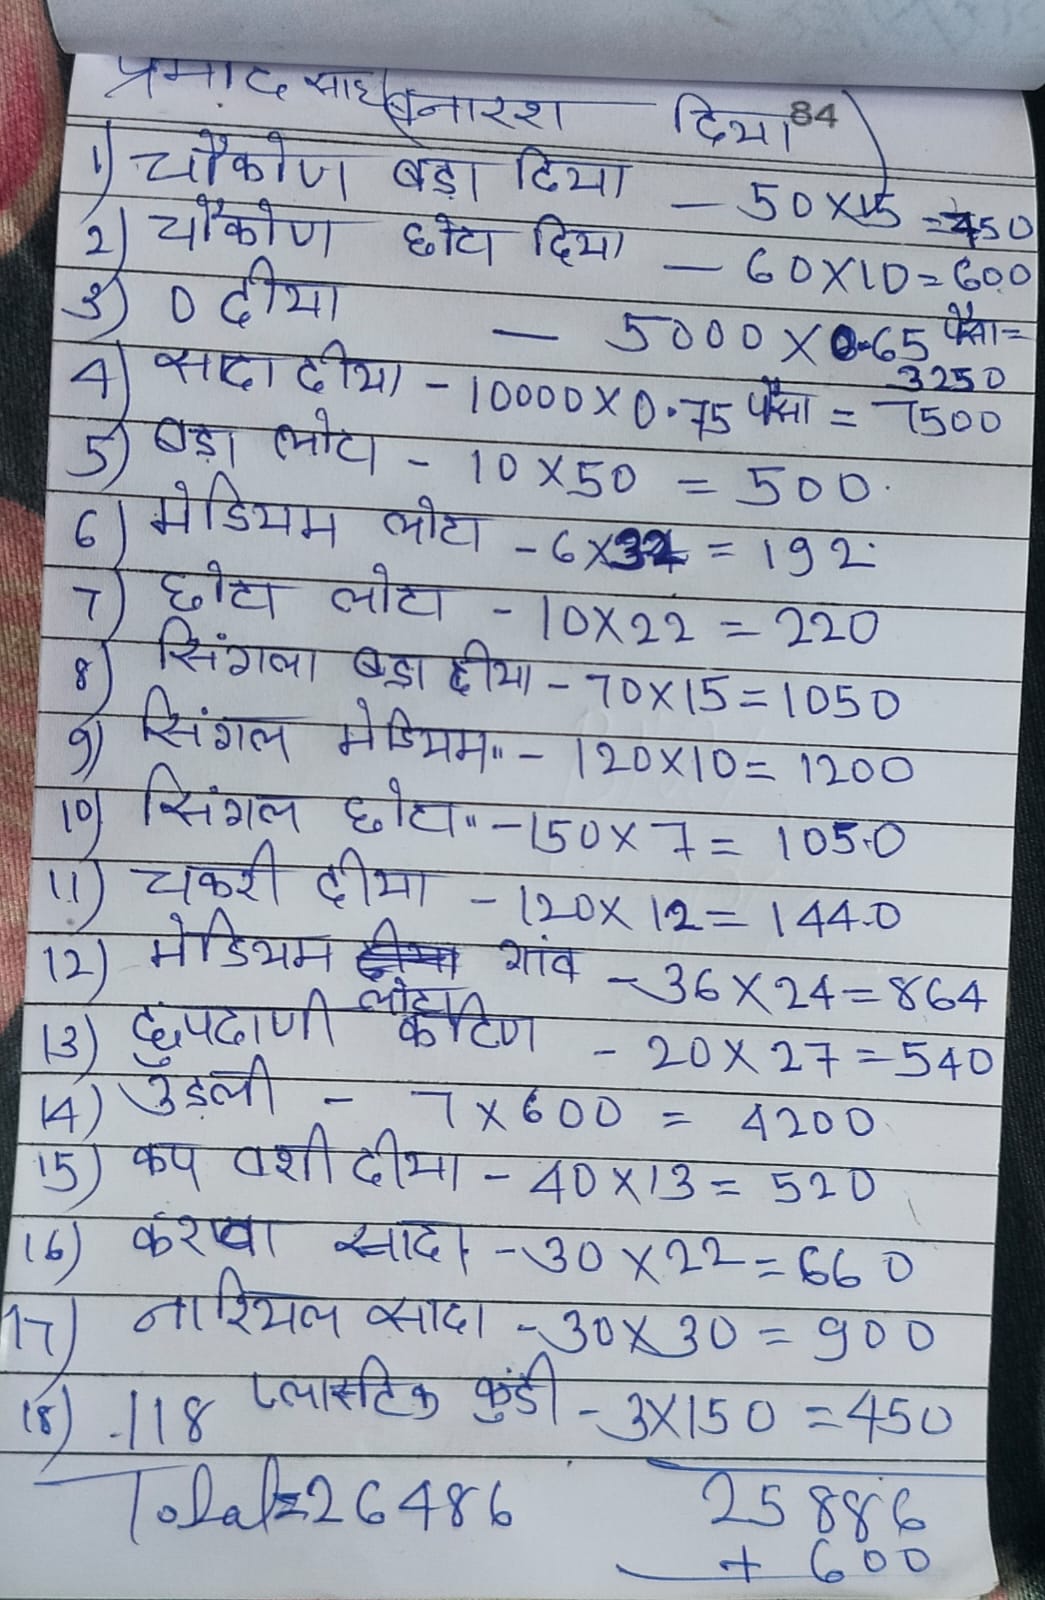 प्रमोद साह बनारश दिया 84
1) चौकोण बड़ा दिया - 50×15 = 750
2) चौकोण छोटा दिया - 60×10 = 600
3) 0 दीया - 5000 × 0.65 पैसा =
3250
4) सादा दीया - 10000 × 0.75 पैसा = 7500
5) बड़ा लोटा - 10×50 = 500
6) मेडियम लोटा - 6×32 = 192
7) छोटा लोटा - 10×22 = 220
8) सिंगल बड़ा दीया - 70×15 = 1050
9) सिंगल मेडियम " - 120×10 = 1200
10) सिंगल छोटा " - 150×7 = 1050
11) चकरी दीया - 120×12 = 1440
12) मेडियम लोटा गांव - 36×24 = 864
13) धुपदाणी कटिंग - 20×27 = 540
14) उडली - 7×600 = 4200
15) कप वशी दीया - 40×13 = 520
16) करवा सादा - 30×22 = 660
17) नारियल सादा - 30×30 = 900
18) 118 प्लास्टिक कुंडी - 3×150 = 450
Total = 26486 25886
+ 600